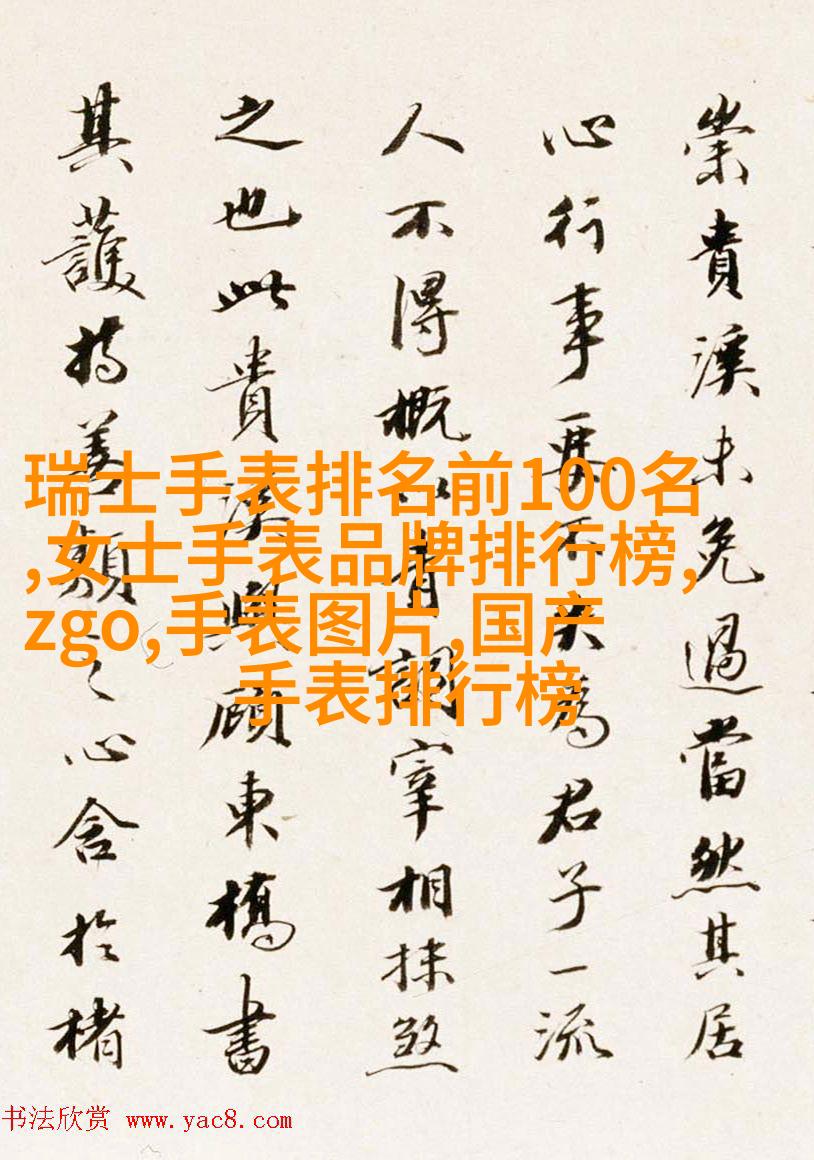 崇貴溪未免過當然其居
心行事要不失為君子一流
人不得概以青詞宰相抹煞
之也此貴溪與顧東橋書
其護持善類之心含於楮
瑞士手表排名前100名
,女士手表品牌排行榜,
zgo,手表图片,国产
手表排行榜
书法欣赏 www.yac8.com